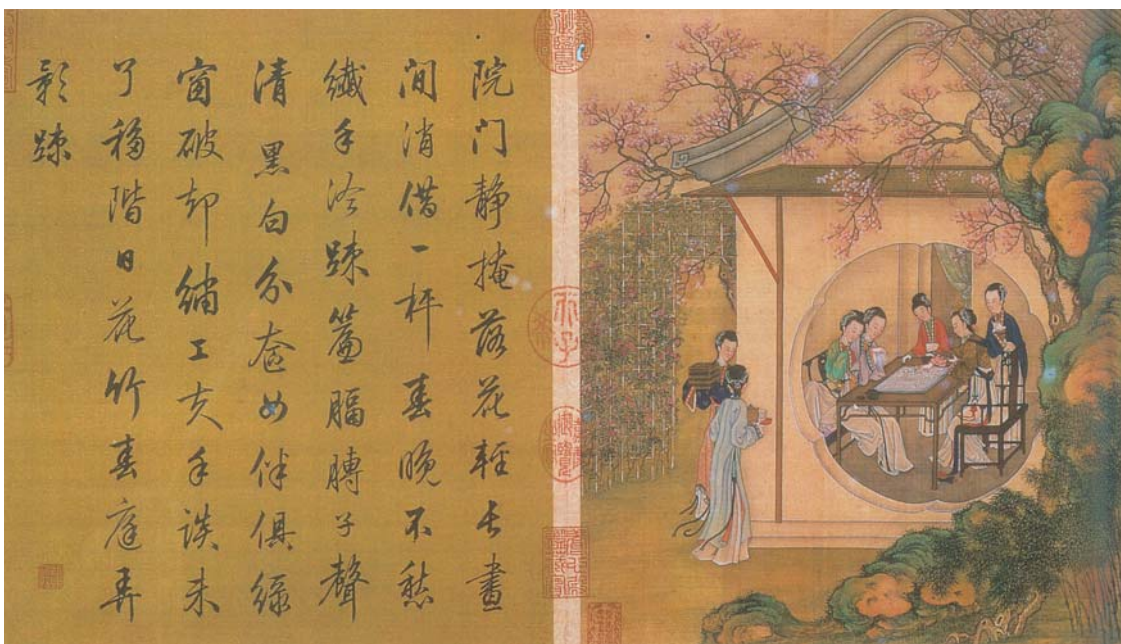 院門静掩落花輕長晝
間消借一枰春晚不愁
纖手冷踈簾腷膊子聲
清黑白分奩女伴俱緑
窗破却繡工夫手談未
了移階日花竹春庭弄
影踈